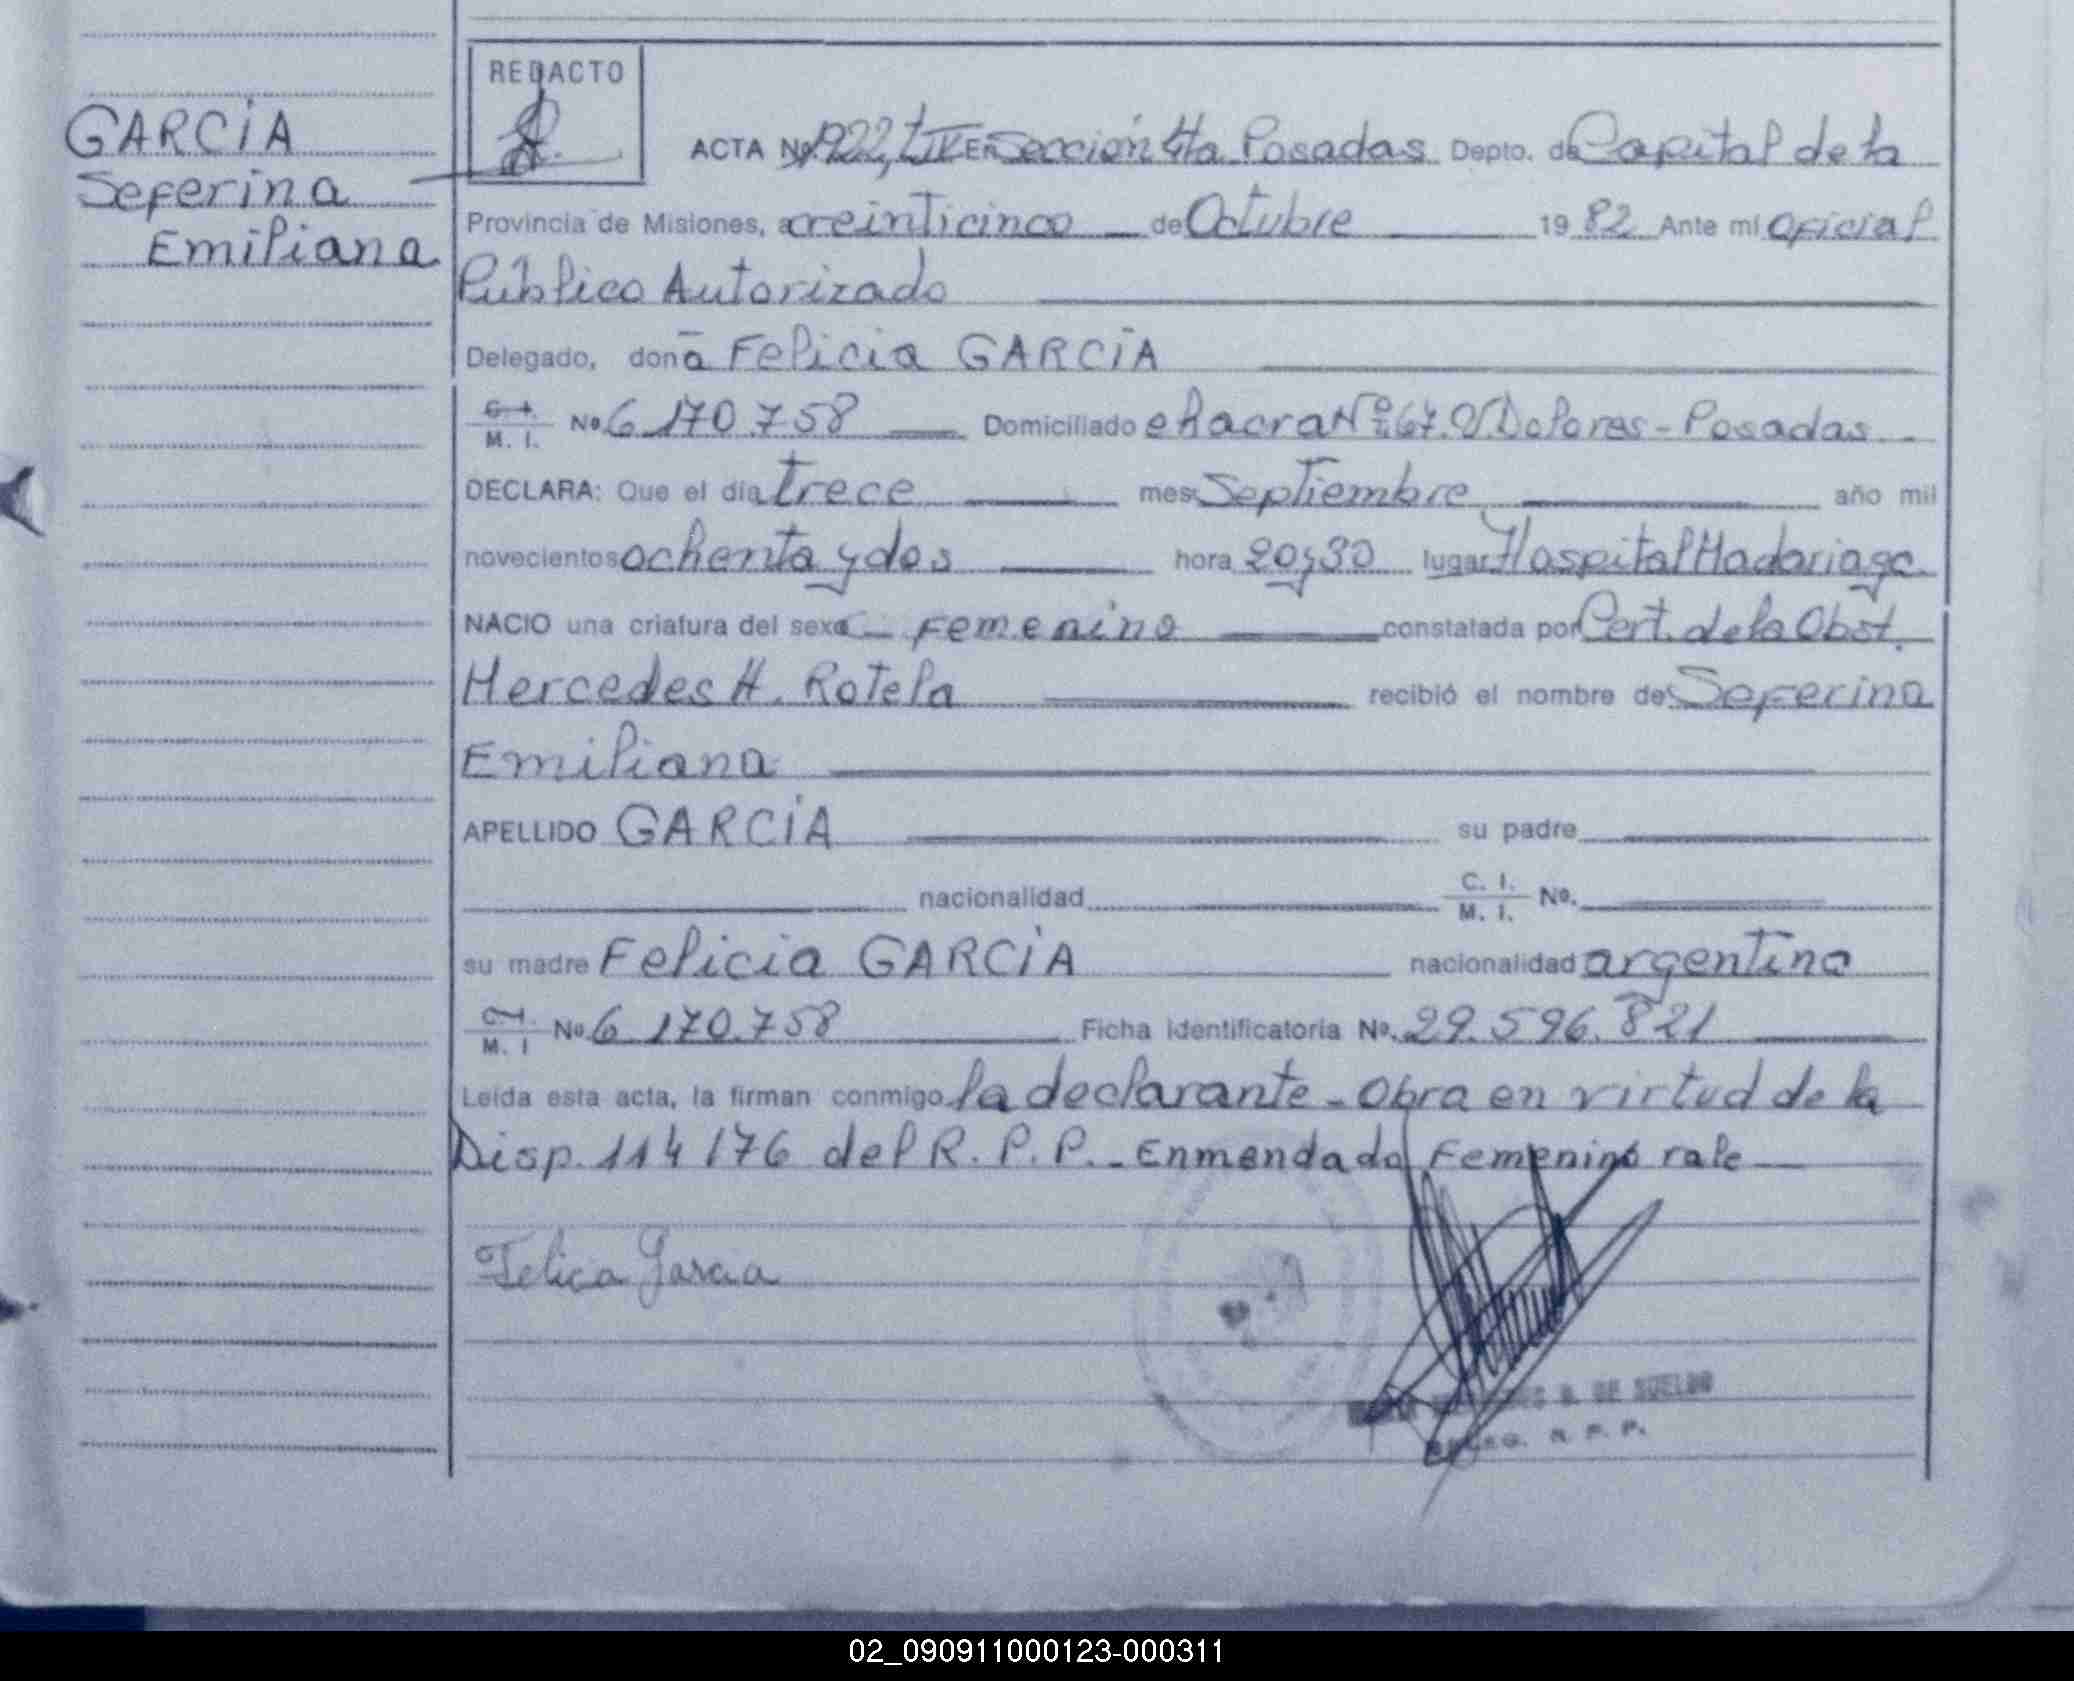 GARCÍA
Seferina
Emiliana
REDACTO
ACTA Nº 1922, tIV EN Sección 4ta Posadas Depto. de Capital de la
Provincia de Misiones, a veinticinco de Octubre 1982 Ante mi Oficial
Público Autorizado
Delegado, doña Felicia GARCÍA
C. I. M. I. Nº 6.170.758 Domiciliado chacra Nº 67. V. Dolores - Posadas
DECLARA: Que el día trece mes Septiembre año mil
novecientos ochenta y dos hora 20,30 lugar Hospital Madariaga
NACIO una criatura del sexo femenino constatada por Cert. de la Obst.
Mercedes H. Rotela recibió el nombre de Seferina
Emiliana
APELLIDO GARCÍA su padre
nacionalidad C. I. M. I. Nº.
su madre Felicia GARCÍA nacionalidad argentina
C. I. M. I Nº 6.170.758 Ficha identificatoria Nº. 29.596.821
Leída esta acta, la firman conmigo la declarante - Obra en virtud de la
Disp. 114/76 del R. P. P. - Enmendado femenino vale
Felica Garcia
B. DE SUELDO
R. P. P.
02_090911000123-000311